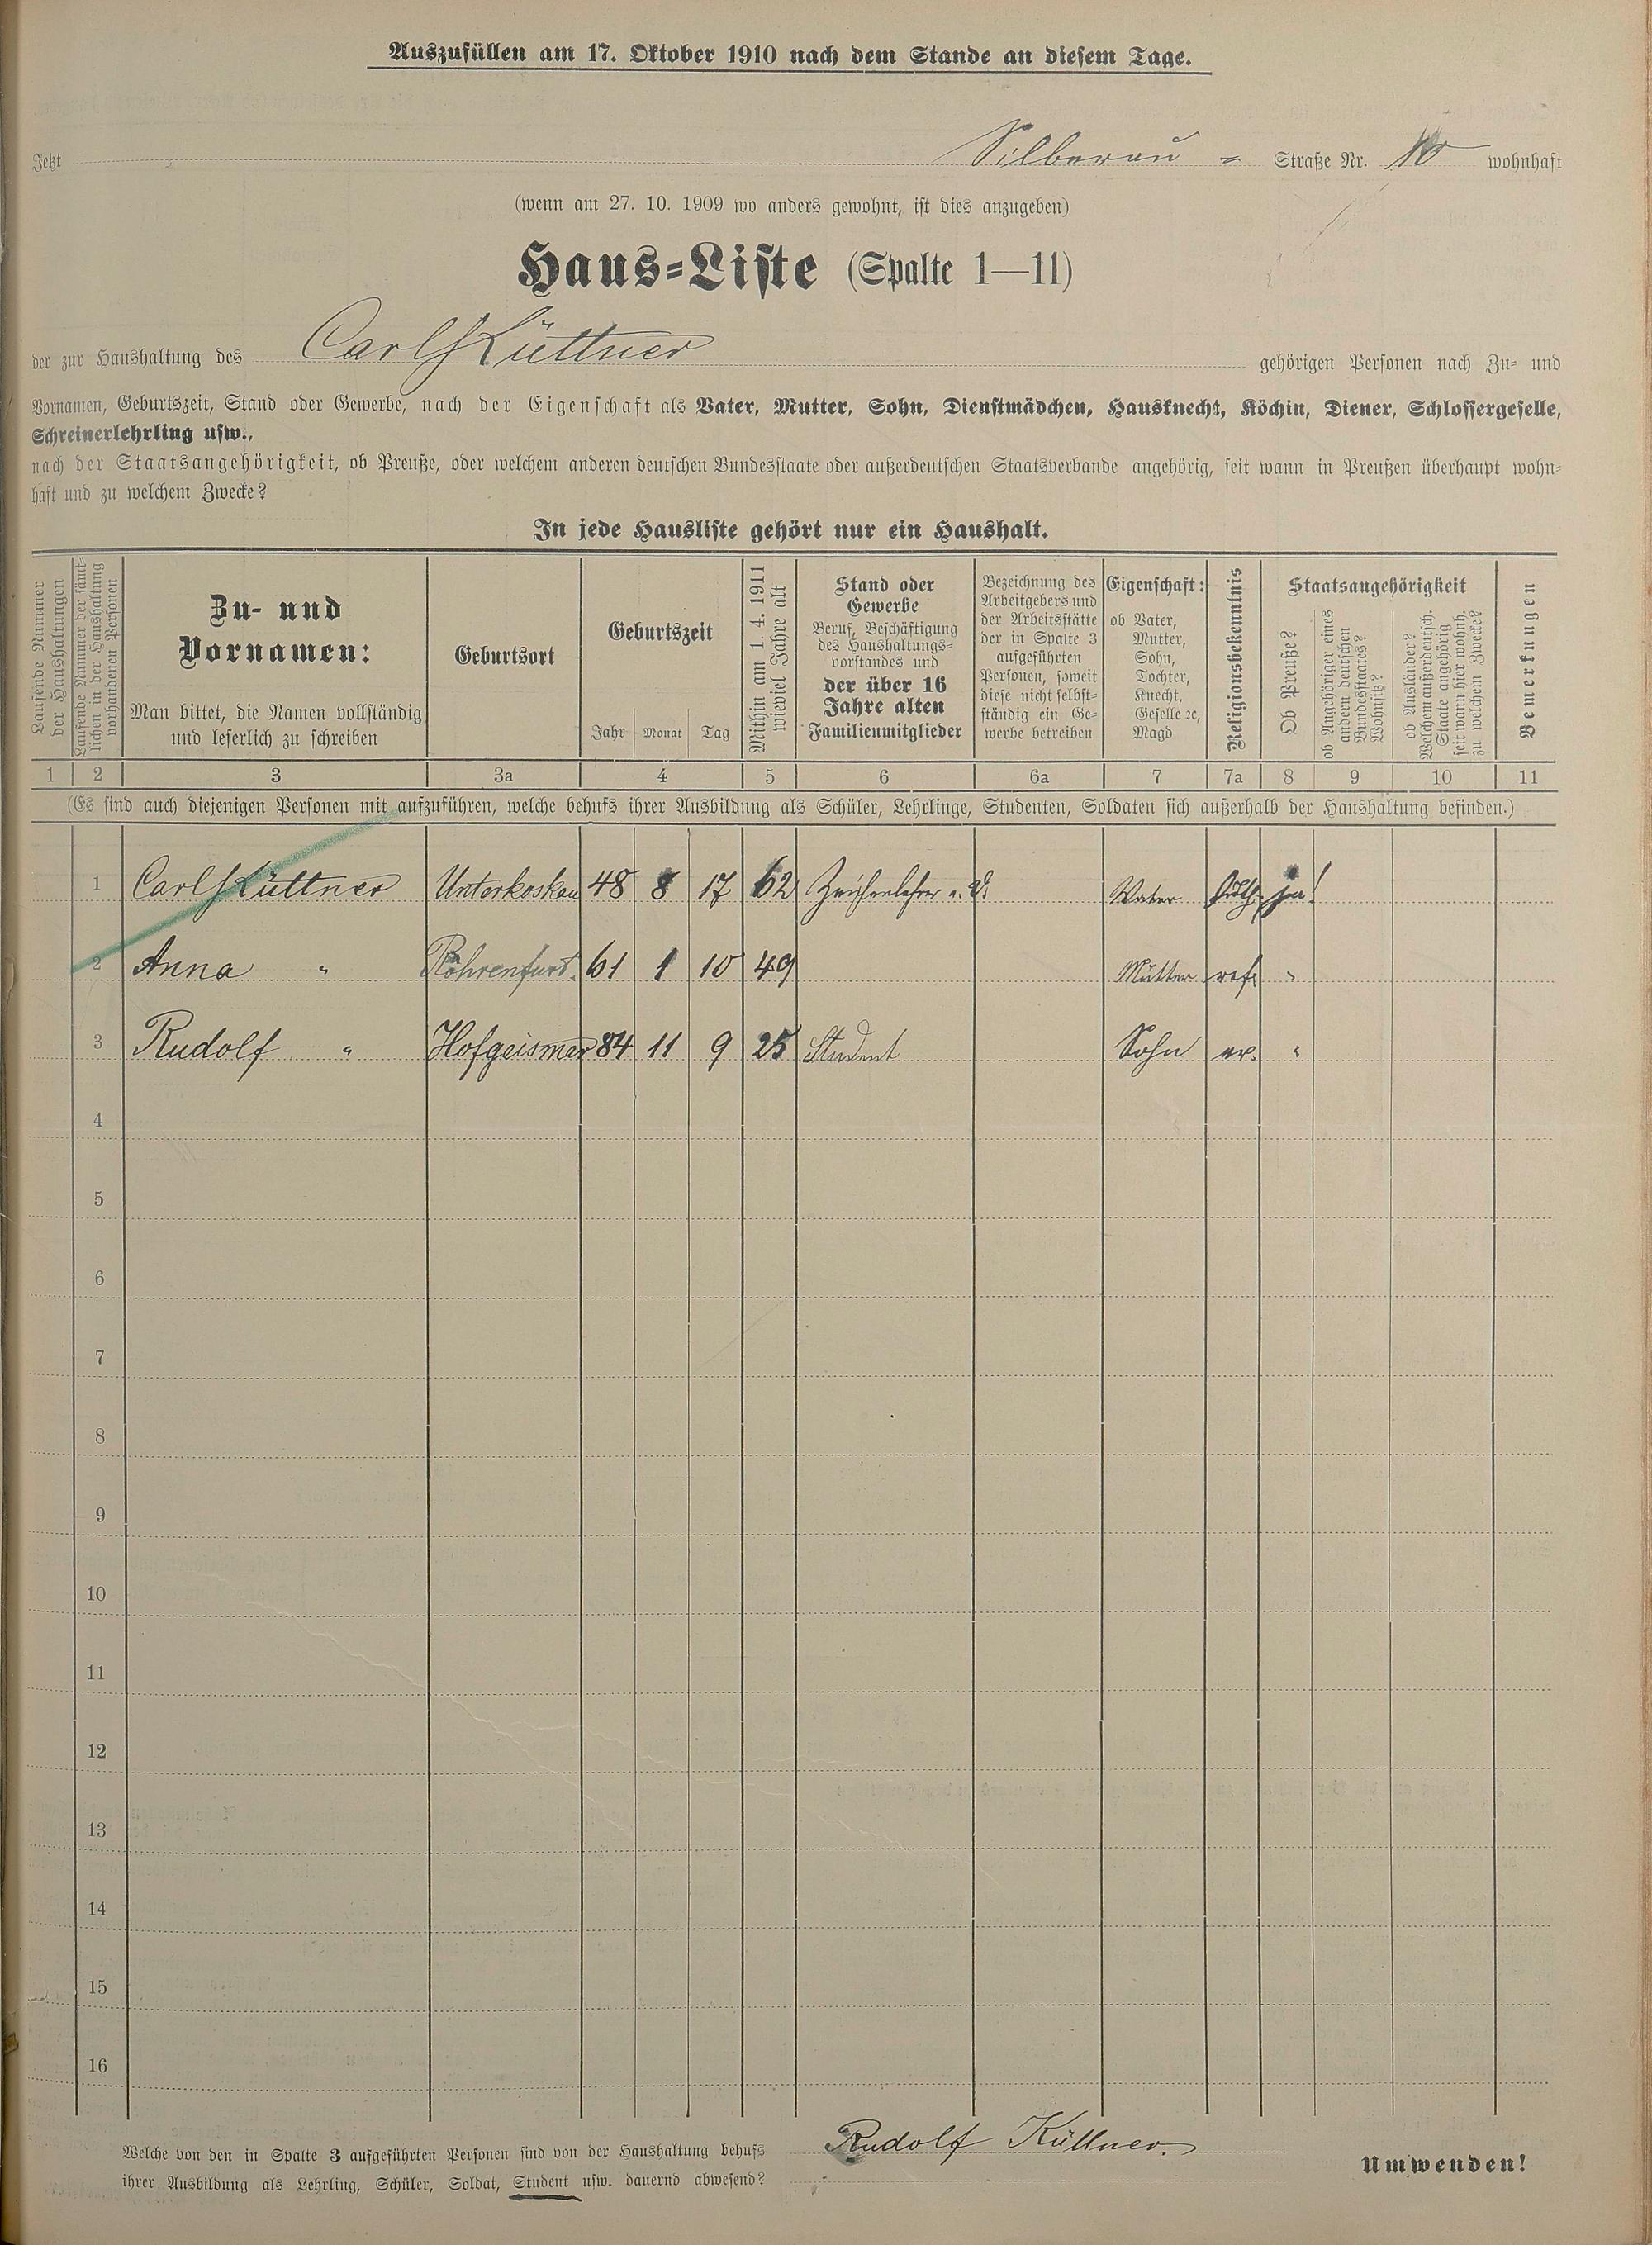 Auszufüllen am 17. Oktober 1910 nach dem Stande an diesem Tage.
Jetzt Silberau = Straße Nr. 10 wohnhaft
(wenn am 27. 10. 1909 wo anders gewohnt, ist dies anzugeben)
Haus=Liste (Spalte 1—11)
der zur Haushaltung des Carl Küttner gehörigen Personen nach Zu= und
Vornamen, Geburtszeit, Stand oder Gewerbe, nach der Eigenschaft als Vater, Mutter, Sohn, Dienstmädchen, Hausknecht, Köchin, Diener, Schlossergeselle,
Schreinerlehrling usw.,
nach der Staatsangehörigkeit, ob Preuße, oder welchem anderen deutschen Bundesstaate oder außerdeutschen Staatsverbande angehörig, seit wann in Preußen überhaupt wohn=
haft und zu welchem Zwecke?
In jede Hausliste gehört nur ein Haushalt.
Laufende Nummer
der Haushaltungen
Laufende Nummer der sämt=
lichen in der Haushaltung
vorhandenen Personen
Zu- und
Vornamen:
Man bittet, die Namen vollständig
und leserlich zu schreiben
Geburtsort
Geburtszeit
Jahr Monat Tag
Mithin am 1. 4. 1911
wieviel Jahre alt
Stand oder
Gewerbe
Beruf, Beschäftigung
des Haushaltungs=
vorstandes und
der über 16
Jahre alten
Familienmitglieder
Bezeichnung des
Arbeitgebers und
der Arbeitsstätte
der in Spalte 3
aufgeführten
Personen, soweit
diese nicht selbst=
ständig ein Ge=
werbe betreiben
Eigenschaft:
ob Vater,
Mutter,
Sohn,
Tochter,
Knecht,
Geselle ꝛc,
Magd
Religionsbekenntnis
Staatsangehörigkeit
Ob Preuße?
ob Angehöriger eines
andern deutschen
Bundesstaates?
Wohnsitz?
ob Ausländer?
Welchem außerdeutsch.
Staate angehörig
seit wann hier wohnh.
zu welchem Zwecke?
Bemerkungen
1 2 3 3a 4 5 6 6a 7 7a 8 9 10 11
(Es sind auch diejenigen Personen mit aufzuführen, welche behufs ihrer Ausbildung als Schüler, Lehrlinge, Studenten, Soldaten sich außerhalb der Haushaltung befinden.)
1 Carl Küttner Unterkoskau 48 8 17 62 Zeichenlehrer a. D. Vater luth. ja!
2 Anna " Röhrenfurt. 61 1 10 49 Mutter ref. "
3 Rudolf " Hofgeismar 84 11 9 25 Student Sohn ev. "
4
5
6
7
8
9
10
11
12
13
14
15
16
Welche von den in Spalte 3 aufgeführten Personen sind von der Haushaltung behufs
ihrer Ausbildung als Lehrling, Schüler, Soldat, Student usw. dauernd abwesend?
Rudolf Küttner.
Umwenden!